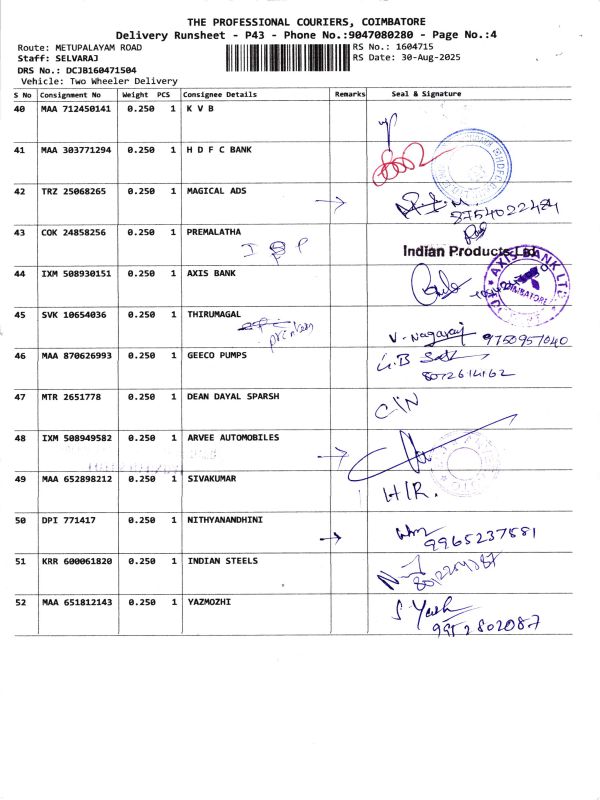 THE PROFESSIONAL COURIERS, COIMBATORE
Delivery Runsheet - P43 - Phone No.:9047080280 - Page No.:4
Route: METUPALAYAM ROAD RS No.: 1604715
Staff: SELVARAJ RS Date: 30-Aug-2025
DRS No.: DCJB160471504
Vehicle: Two Wheeler Delivery
S No Consignment No Weight PCS Consignee Details Remarks Seal & Signature
40 MAA 712450141 0.250 1 K V B
41 MAA 303771294 0.250 1 H D F C BANK
42 TRZ 25068265 0.250 1 MAGICAL ADS
9754022484
43 COK 24858256 0.250 1 PREMALATHA
Indian Products Ltd
44 IXM 508930151 0.250 1 AXIS BANK
AXIS BANK LTD
COIMBATORE
45 SVK 10654036 0.250 1 THIRUMAGAL
printers
V. Nagaraj 9750957040
46 MAA 870626993 0.250 1 GEECO PUMPS
8072614162
47 MTR 2651778 0.250 1 DEAN DAYAL SPARSH
C\N
48 IXM 508949582 0.250 1 ARVEE AUTOMOBILES
49 MAA 652898212 0.250 1 SIVAKUMAR
H/R.
50 DPI 771417 0.250 1 NITHYANANDHINI
9965237581
51 KRR 600061820 0.250 1 INDIAN STEELS
52 MAA 651812143 0.250 1 YAZMOZHI
S Yazh
9952802087